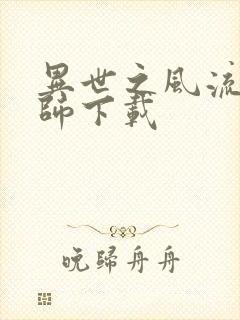 異世之風流
師下載
晚歸舟舟